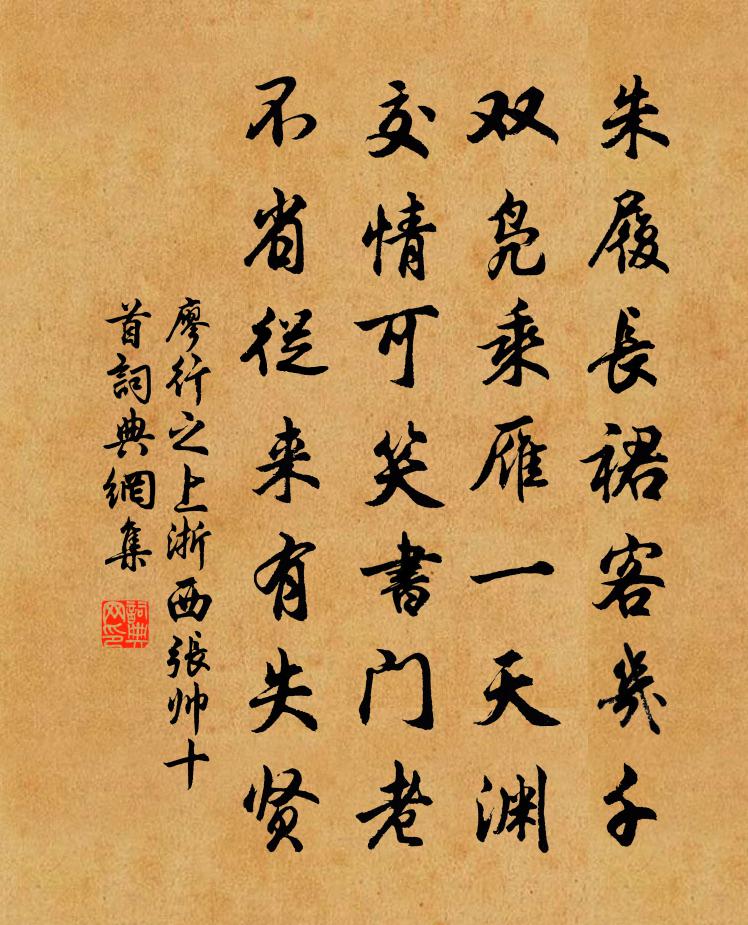 朱履長裙客幾千
双凫乘雁一天渊
交情可笑書门老
不省從来有失贤
廖行之上浙西張帅十
首詞典網集
詞典网印